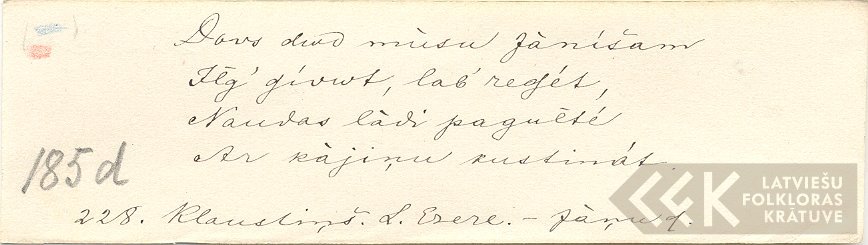 Dovs dwd mùsu Jàníšam
Ilg' dívwt, lab' redzét,
Naudas làdi pagulté
Ar kàjiņu kustinát.
185 d
228. Klaustiņš. L. Ezere. – Jàņu d.
LATVIEŠU
FOLKLORAS
KRĀTUVE